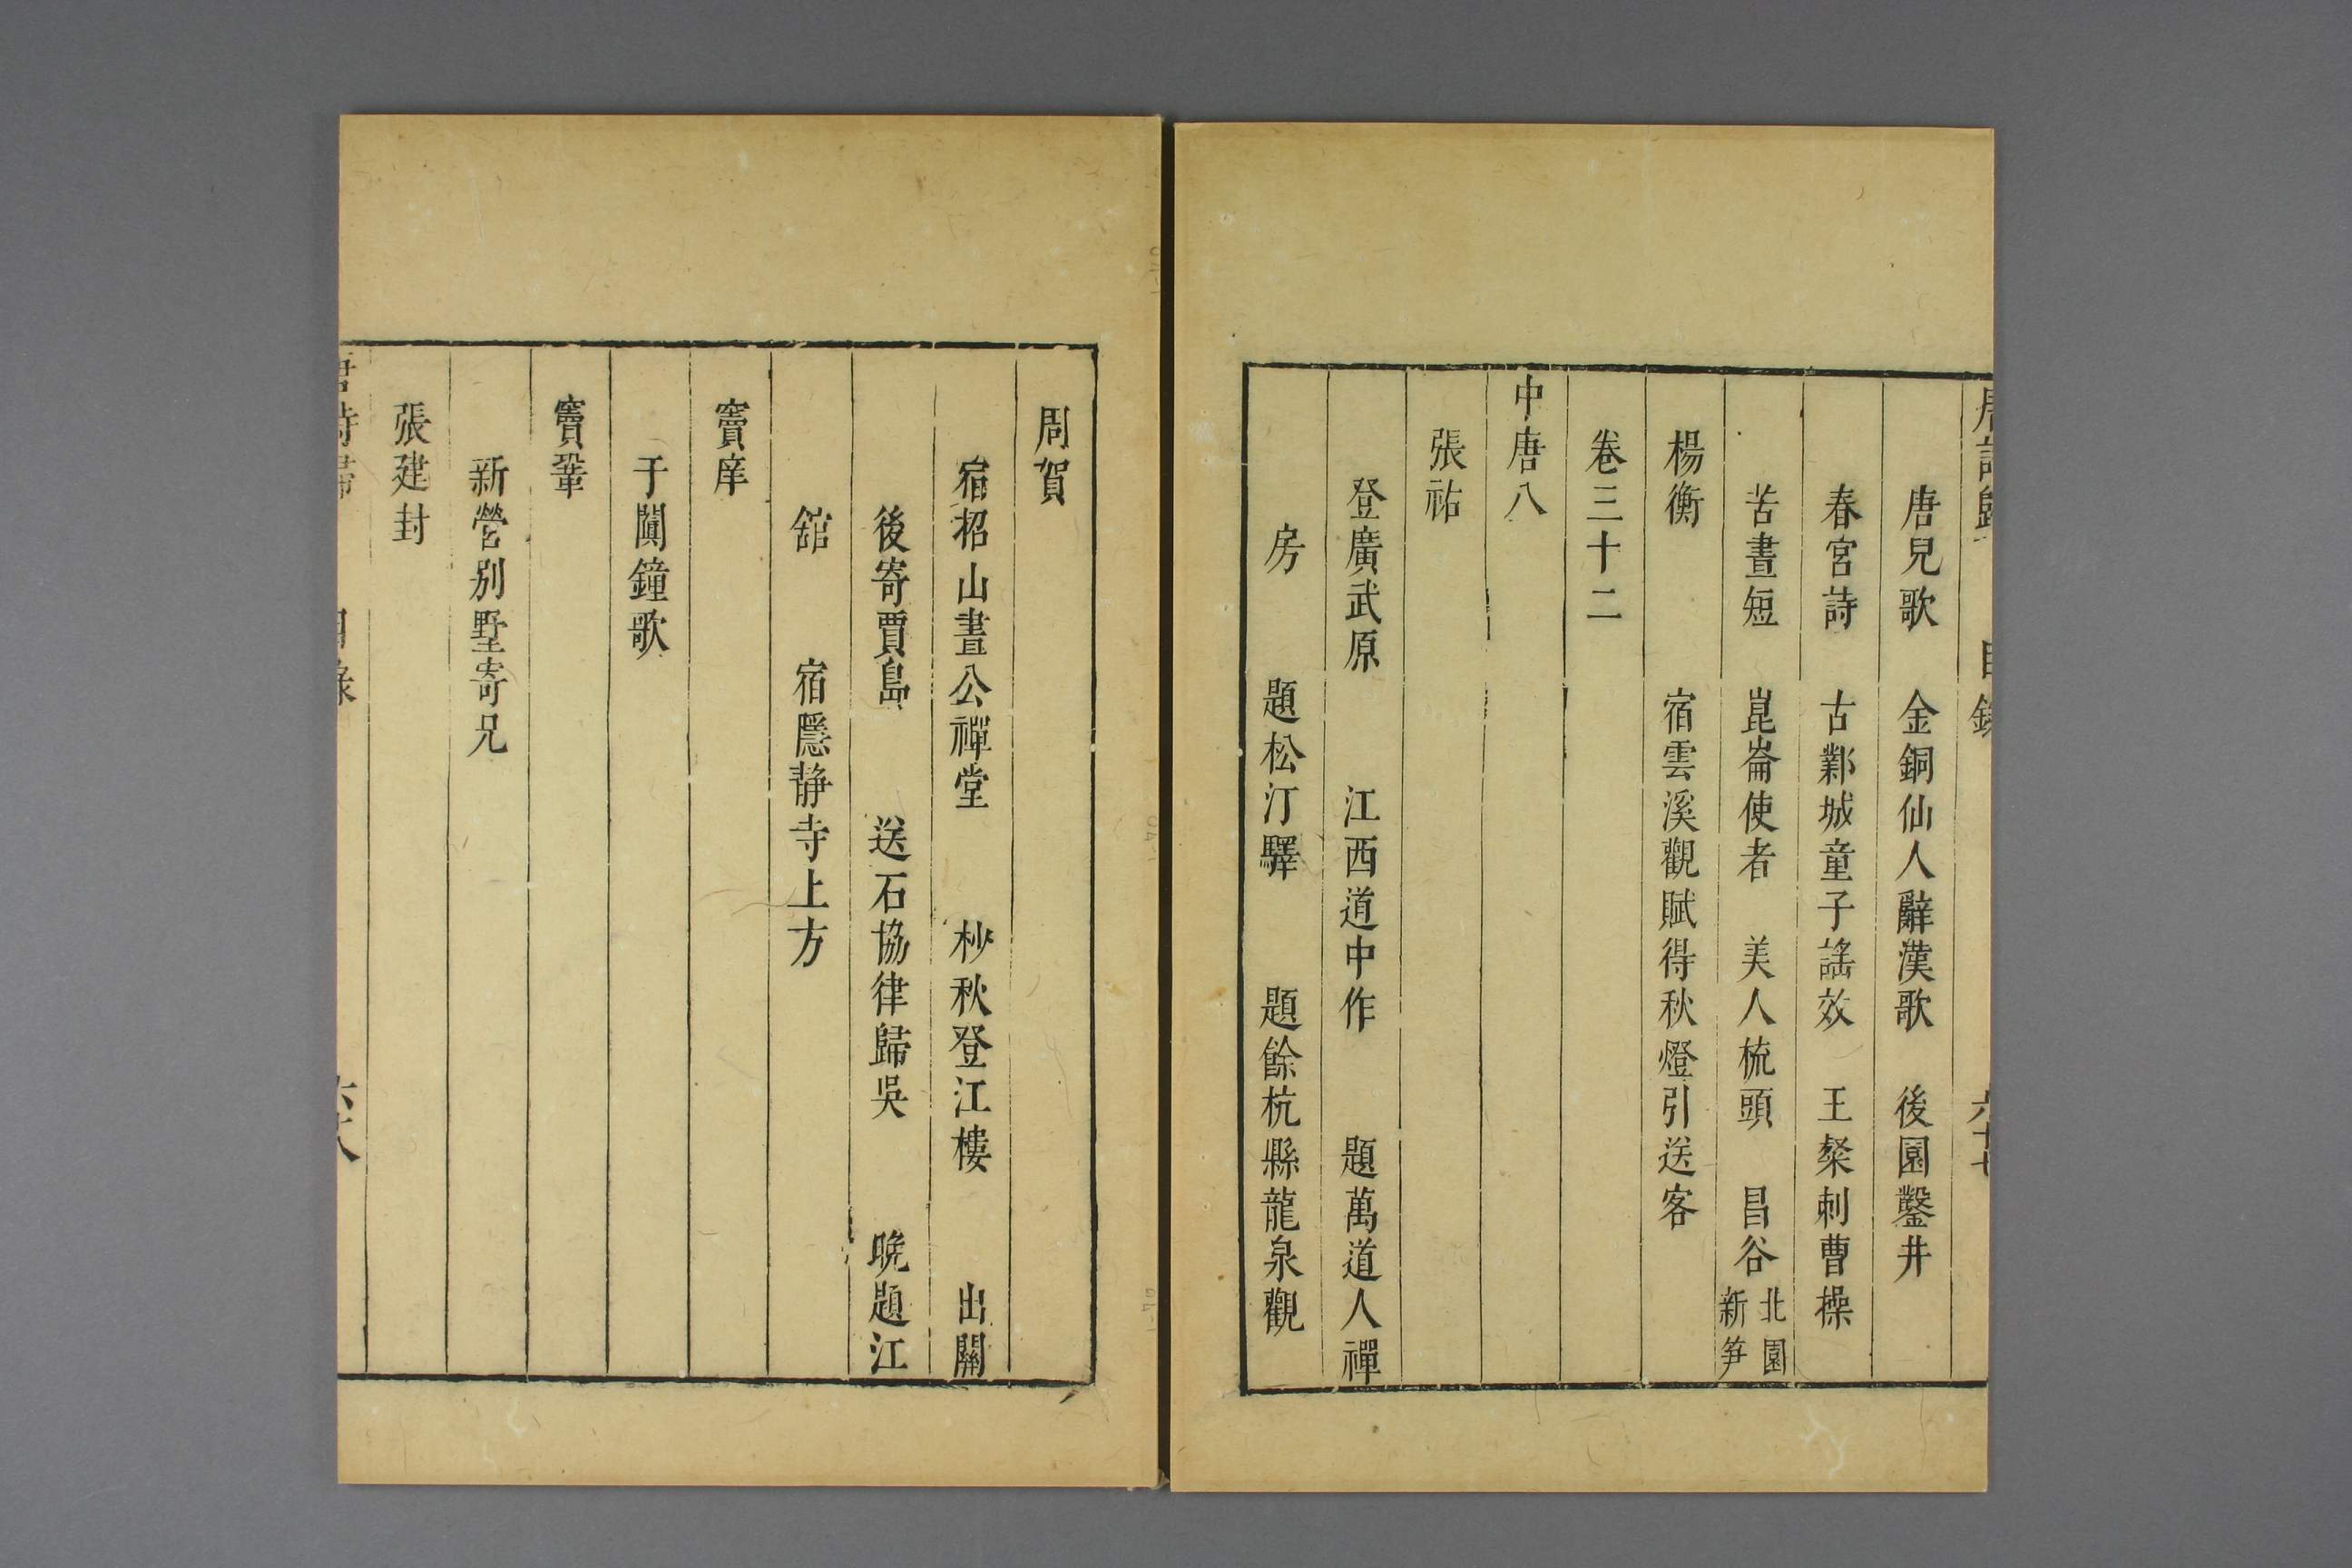 唐詩歸 目錄 六十七
唐兒歌 金銅仙人辭漢歌 後園鑿井
春宮詩 古鄴城童子謠效 王粲刺曹操
苦晝短 崑崙使者 美人梳頭 昌谷北園新笋
楊衡 宿雲溪觀賦得秋燈引送客
卷三十二
中唐八
張祜
登廣武原 江西道中作 題萬道人禪
房 題松汀驛 題餘杭縣龍泉觀
周賀
宿招山晝公禪堂 杪秋登江樓 出關
後寄賈島 送石協律歸吳 晚題江
舘 宿隱静寺上方
竇庠
于闐鐘歌
竇鞏
新營别墅寄兄
張建封
唐詩歸 目錄